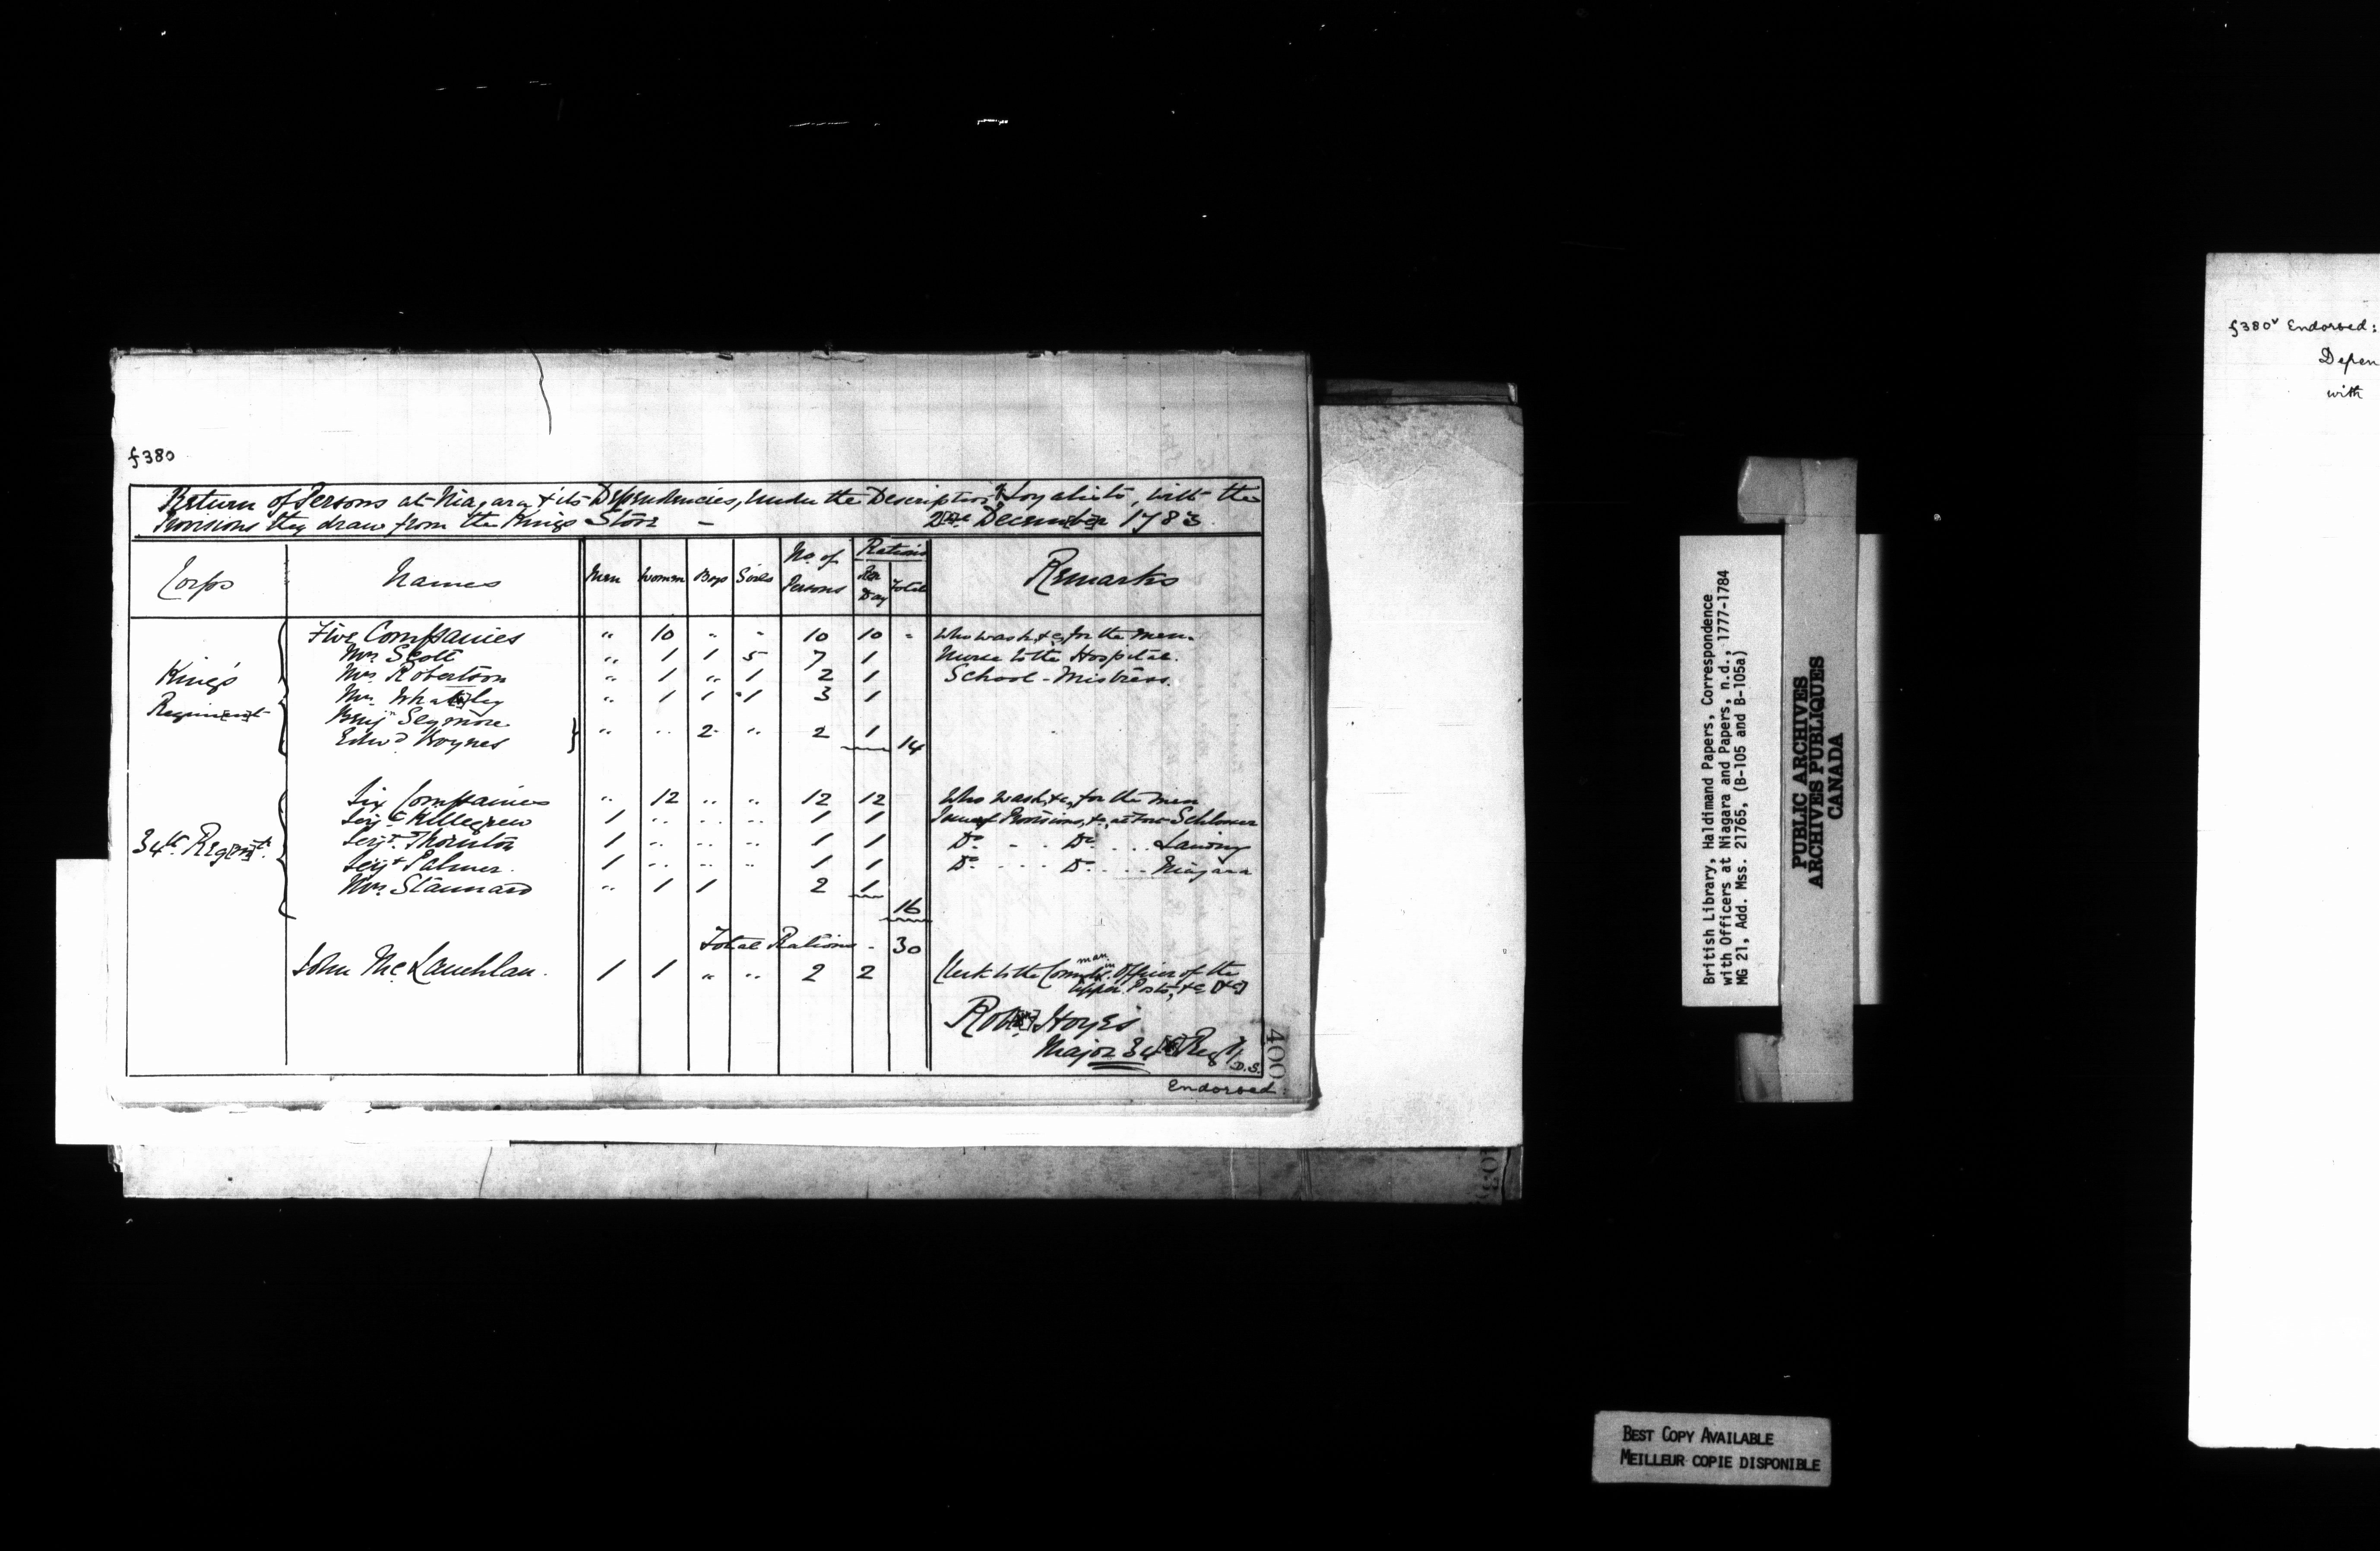 f380
Return of Persons at Niagara & its Dependencies, under the Description of Loyalists, with the
Provisions they draw from the Kings Store – 2nd December 1783.
Corps Names Men Women Boys Girls No. of Persons Rations Per Day Total Remarks
Five Companies " 10 " " 10 10 " Who wash, &c, for the men.
Mrs. Scott " 1 1 5 7 1 Nurse to the Hospital.
King's Regiment
Mrs. Robertson " 1 " 1 2 1 School-Mistress.
Mrs. Whatley " 1 1 1 3 1
Benjn. Seymore
Edwd. Hoynes } " " 2 " 2 1 14
Six Companies " 12 " " 12 12 Who wash, &c, for the men
Serjt. Killegrew 1 " " " 1 1 Provisions, &c, at Fort Schlosser
34th. Regimt.
Serjt. Thornton 1 " " " 1 1 Do. . . Do. . . . Landing
Serjt. Palmer. 1 " " " 1 1 Do. . . . Do. . . . Niagara
Mrs. Stannard " 1 1 2 1
16
Total Rations - 30
John McLauchlan. 1 1 " " 2 2 Clerk to the Commandin. Officer of the
Upper Posts, &c [&c]
Robt. Hoyes
Major 34 Regt/
D.S.
Endorsed:
400
f380v Endorsed:
Depen
with
British Library, Haldimand Papers, Correspondence
with Officers at Niagara and Papers, n.d., 1777-1784
MG 21, Add. Mss. 21765, (B-105 and B-105a)
PUBLIC ARCHIVES
ARCHIVES PUBLIQUES
CANADA
BEST COPY AVAILABLE
MEILLEUR COPIE DISPONIBLE